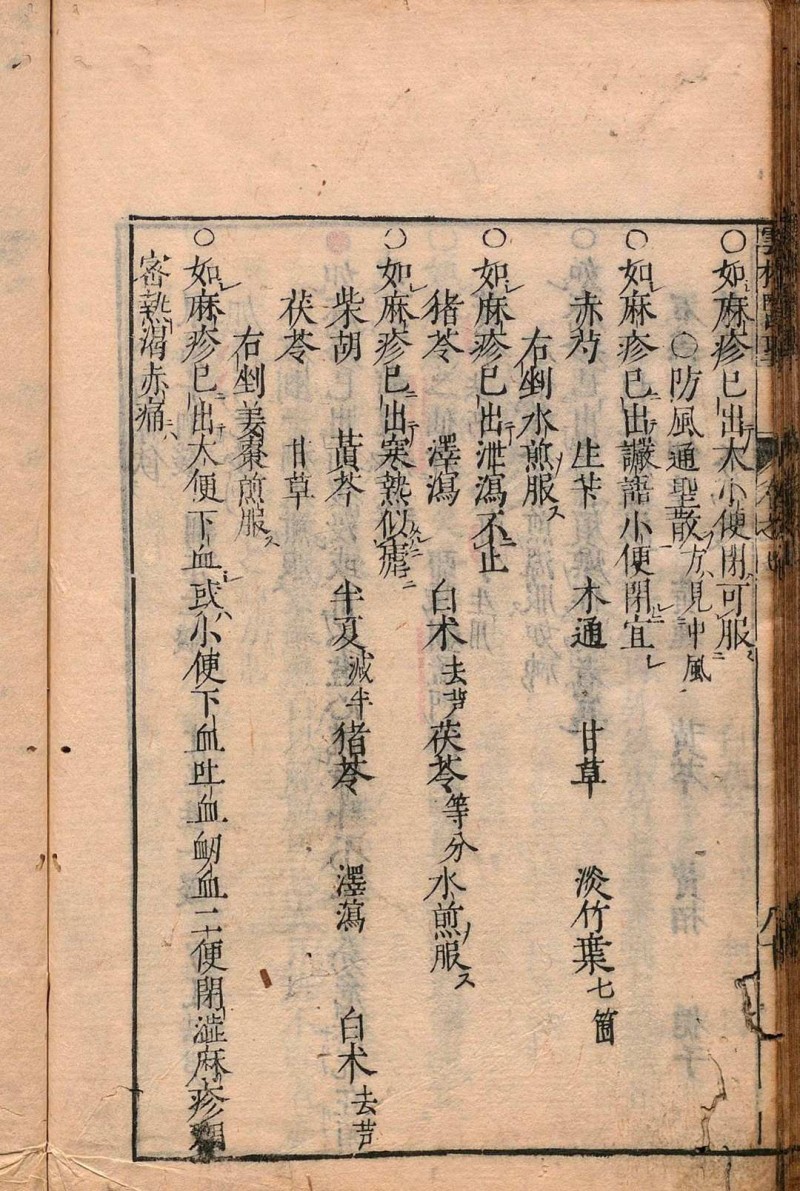 ○如麻疹已出大小便閉可服
○防風通聖散方見中風
○如麻疹已出讝語小便閉宜
赤芍 生芐 木通 甘草 淡竹葉七箇
右剉水煎服ス
○如麻疹已出泄瀉不止
猪苓 澤瀉 白朮去芦 茯苓等分水煎服ス
○如麻疹已出寒熱似瘧ニ
柴胡 黃芩 半夏減半 猪苓 澤瀉 白朮去芦
茯苓 甘草
右剉姜棗煎服ス
○如麻疹已出大便下血或小便下血吐血衂血二便閉澁麻疹稠
密熱渴赤痛